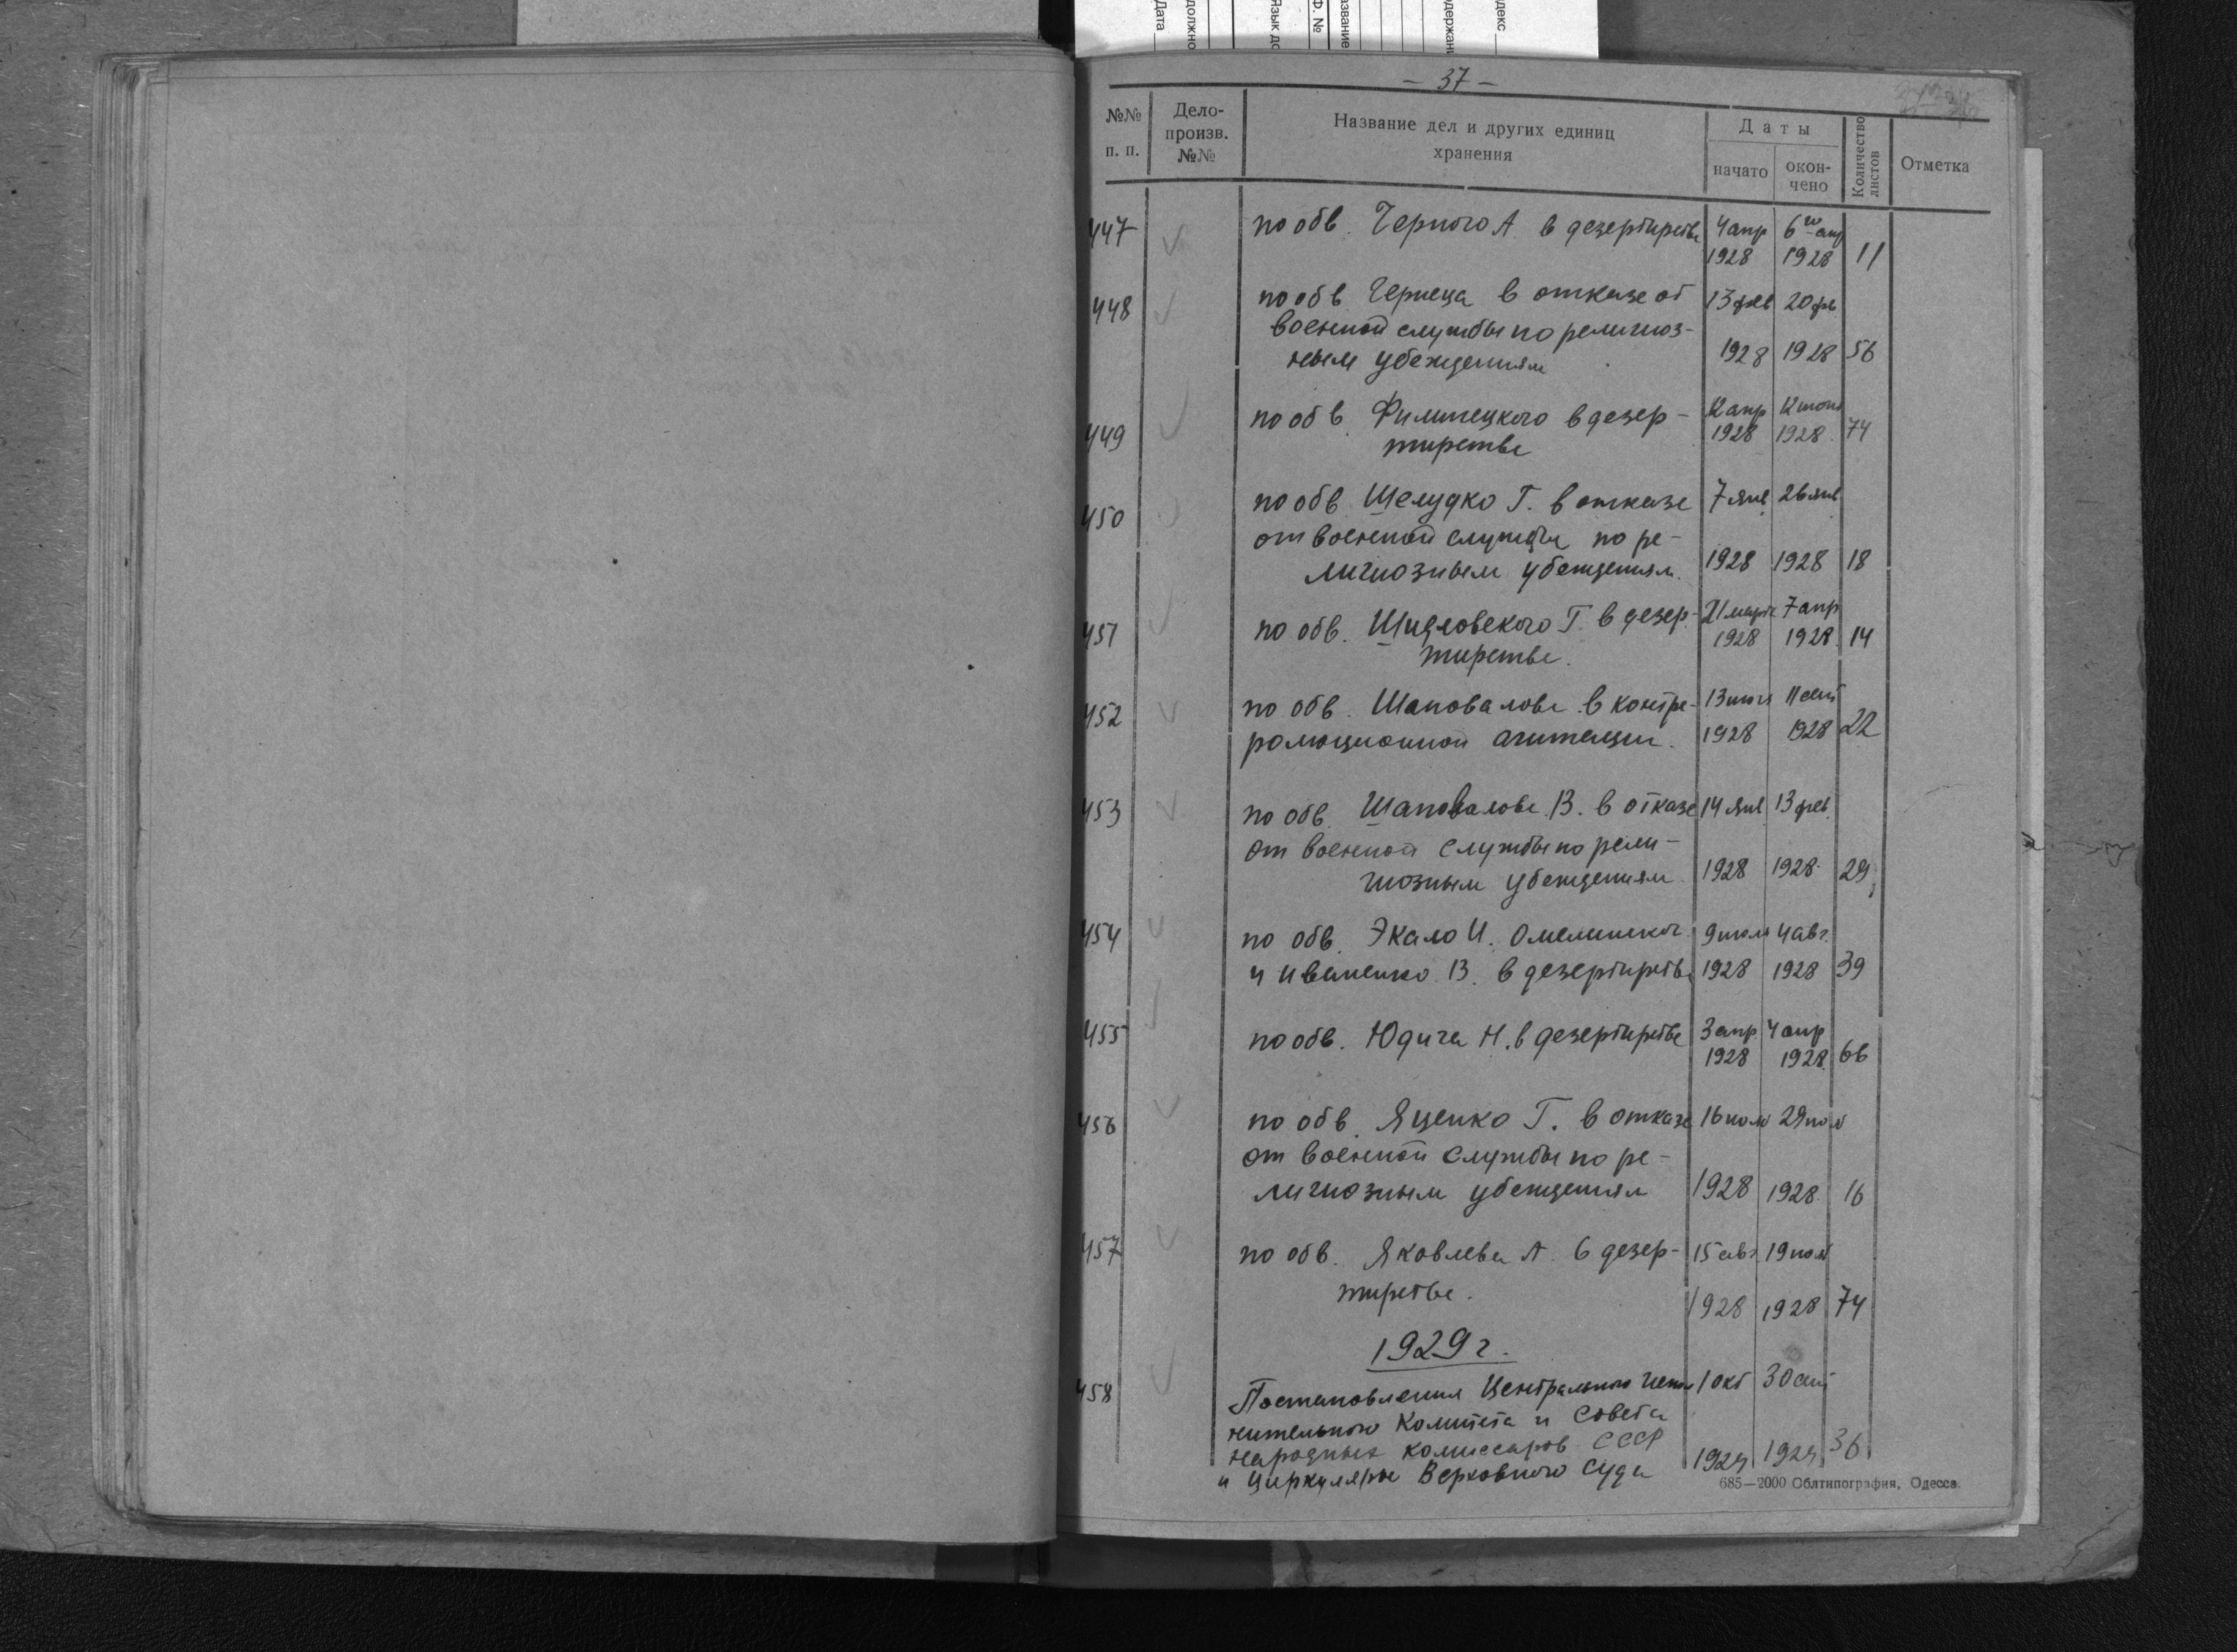 — 37 —
№№ п. п.
Дело-произв. №№
Название дел и других единиц хранения
Даты
начато
окон-чено
Количество листов
Отметка
447 по обв. Черного А в дезертирстве 4 апр 1928 6 апр 1928 11
448 по обв Чернеца в отказе от 13 фев 20 фев
военной службы по религиоз-
ным убеждениям 1928 1928 56
449 по обв. Филипецкого в дезер- 12 апр
тирстве 1928 1928 74
450 по обв. Шелудко Г. в отказе 7 янв 26 янв
от военной службы по ре-
лигиозным убеждениям. 1928 1928 18
451 по обв. Шидловского Г в дезер- 21 март 7 апр
тирстве. 1928 1928 14
452 по обв. Шаповалова в контре- 13 11 сент
ролюционной агитации. 1928 1928 22
453 по обв. Шаповалова В. в отказе 14 янв 13 фев.
от военной службы по рели-
гиозным убеждениям. 1928 1928 29
454 по обв. Экало И. 9 июля 4 авг.
и Иваненко В. в дезертирстве 1928 1928 39
455 по обв. Юдича Н. в дезертирстве 3 апр 4 апр
1928 1928 66
456 по обв. Яценко Г. в отказе 16 29
от военной службы по ре-
лигиозным убеждениям 1928 1928 16
457 по обв. Яковлева А. в дезер- 15 авг 19
тирстве. 1928 1928 74
1929 г.
458 Постановления Центрального Испол 1 окт 30 сент
нительного Комитета и Совета
народных комиссаров СССР 36
и Циркуляры Верховного Суда
685—2000 Облтипография, Одесса.
Дата
должно
Язык до
Ф. №
азвание
одержан
декс